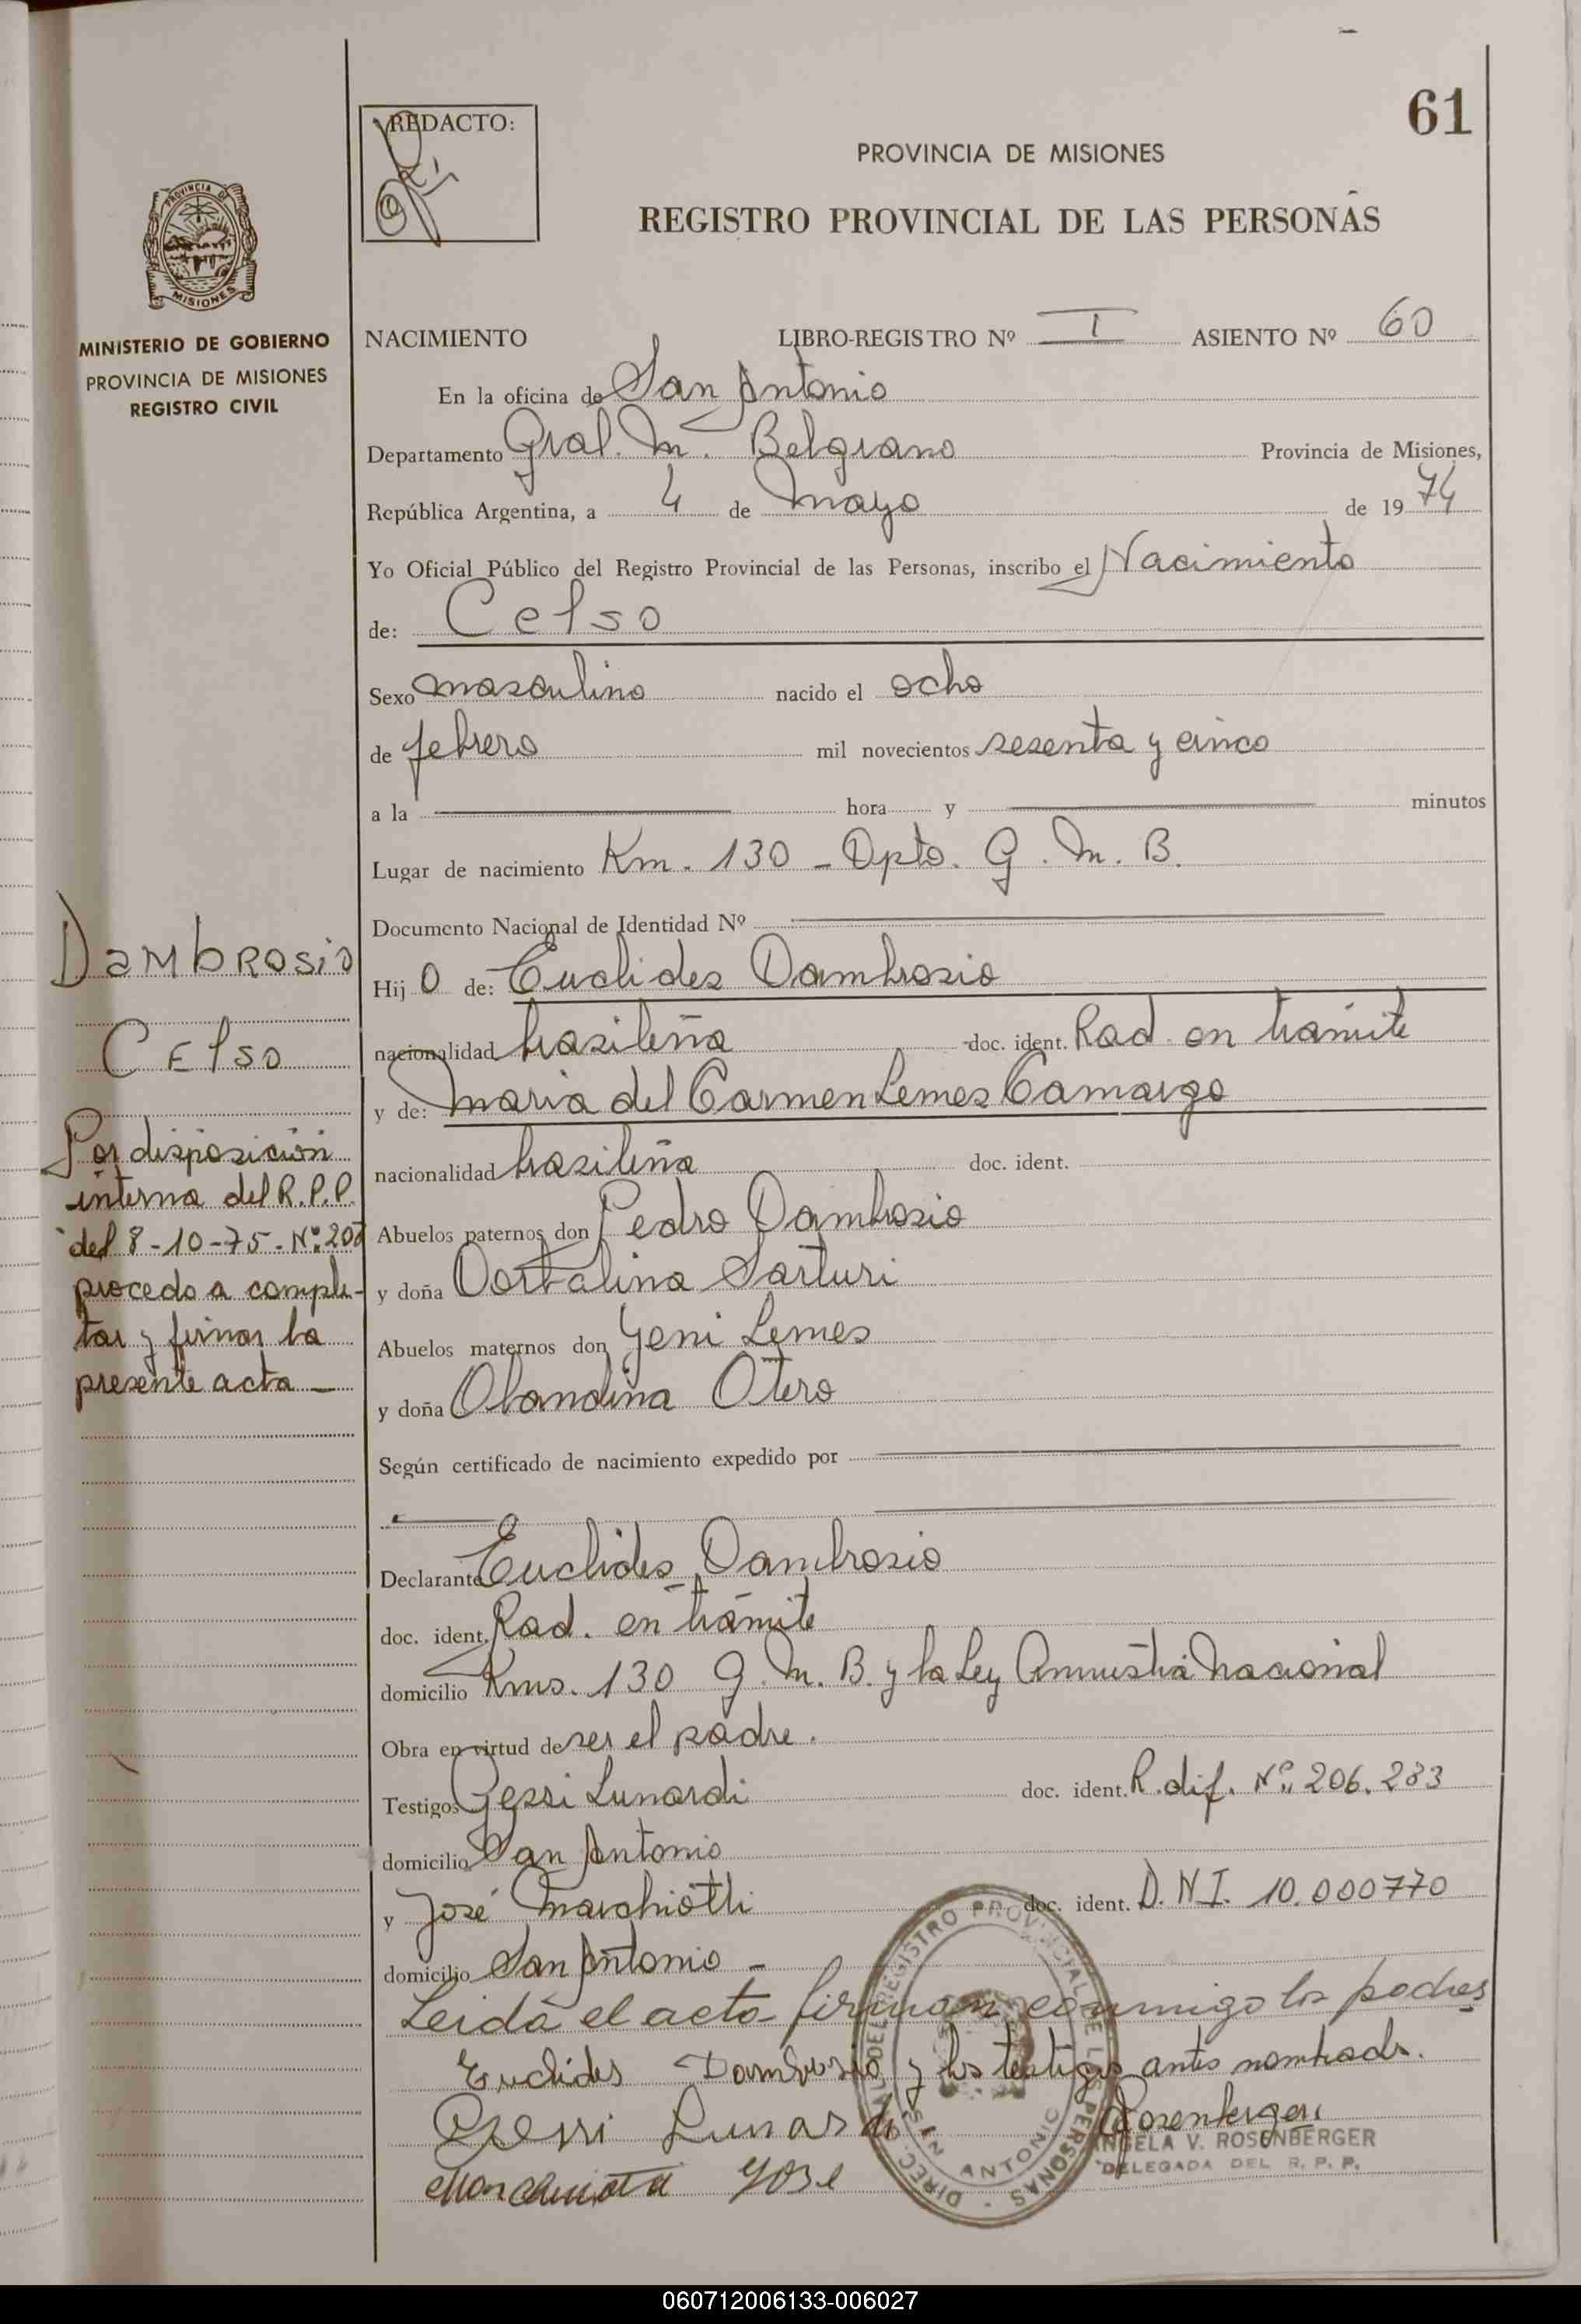 61
REDACTO:
PROVINCIA DE MISIONES
REGISTRO PROVINCIAL DE LAS PERSONAS
PROVINCIA DE
MISIONES
MINISTERIO DE GOBIERNO
PROVINCIA DE MISIONES
REGISTRO CIVIL
NACIMIENTO LIBRO-REGISTRO Nº I ASIENTO Nº 60
En la oficina de San Antonio
Departamento Gral. M. Belgrano Provincia de Misiones,
República Argentina, a 4 de Mayo de 1974
Yo Oficial Público del Registro Provincial de las Personas, inscribo el Nacimiento
de: Celso
Sexo masculino nacido el ocho
de febrero mil novecientos sesenta y cinco
a la hora y minutos
Lugar de nacimiento Km. 130 - Dpto. G. M. B.
Documento Nacional de Identidad Nº
Hijo de: Euclides Dambrosio
nacionalidad brasileña doc. ident. Rad. en trámite
y de: Maria del Carmen Lemes Camargo
nacionalidad brasileña doc. ident.
Abuelos paternos don Pedro Dambrosio
y doña Sarturi
Abuelos maternos don Yeni Lemes
y doña Otero
Según certificado de nacimiento expedido por
Declarante Euclides Dambrosio
doc. ident. Rad. en trámite
domicilio Kms. 130 G. M. B. y la Ley Amnistia Nacional
Obra en virtud de ser el padre.
Testigos Gessi Lunardi doc. ident. R. dif. Nº 206.283
domicilio San Antonio
y José Marchiotti doc. ident. D.N.I. 10.000770
domicilio San Antonio -
Leida el acta firman conmigo los padres
Euclides Dambrosio y los testigos antes nombrads.
Lunardi Rosenberger
José
ANGELA V. ROSENBERGER
DELEGADA DEL R. P. P.
DIREC. GRAL DEL REGISTRO PROVINCIAL DE LAS PERSONAS
SAN ANTONIO
Dambrosio
Celso
Por disposición
interna del R.P.P.
del 8-10-75. Nº 207
procedo a comple-
tar y firmar la
presente acta -
060712006133-006027